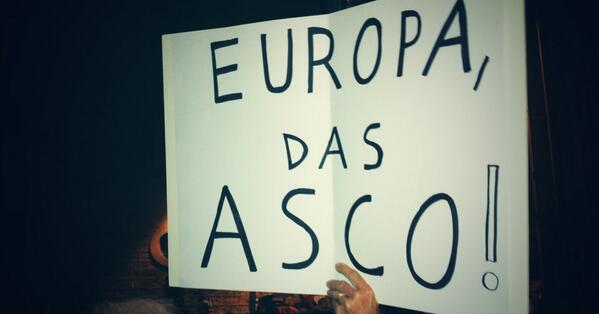 EUROPA,
DAS
ASCO!